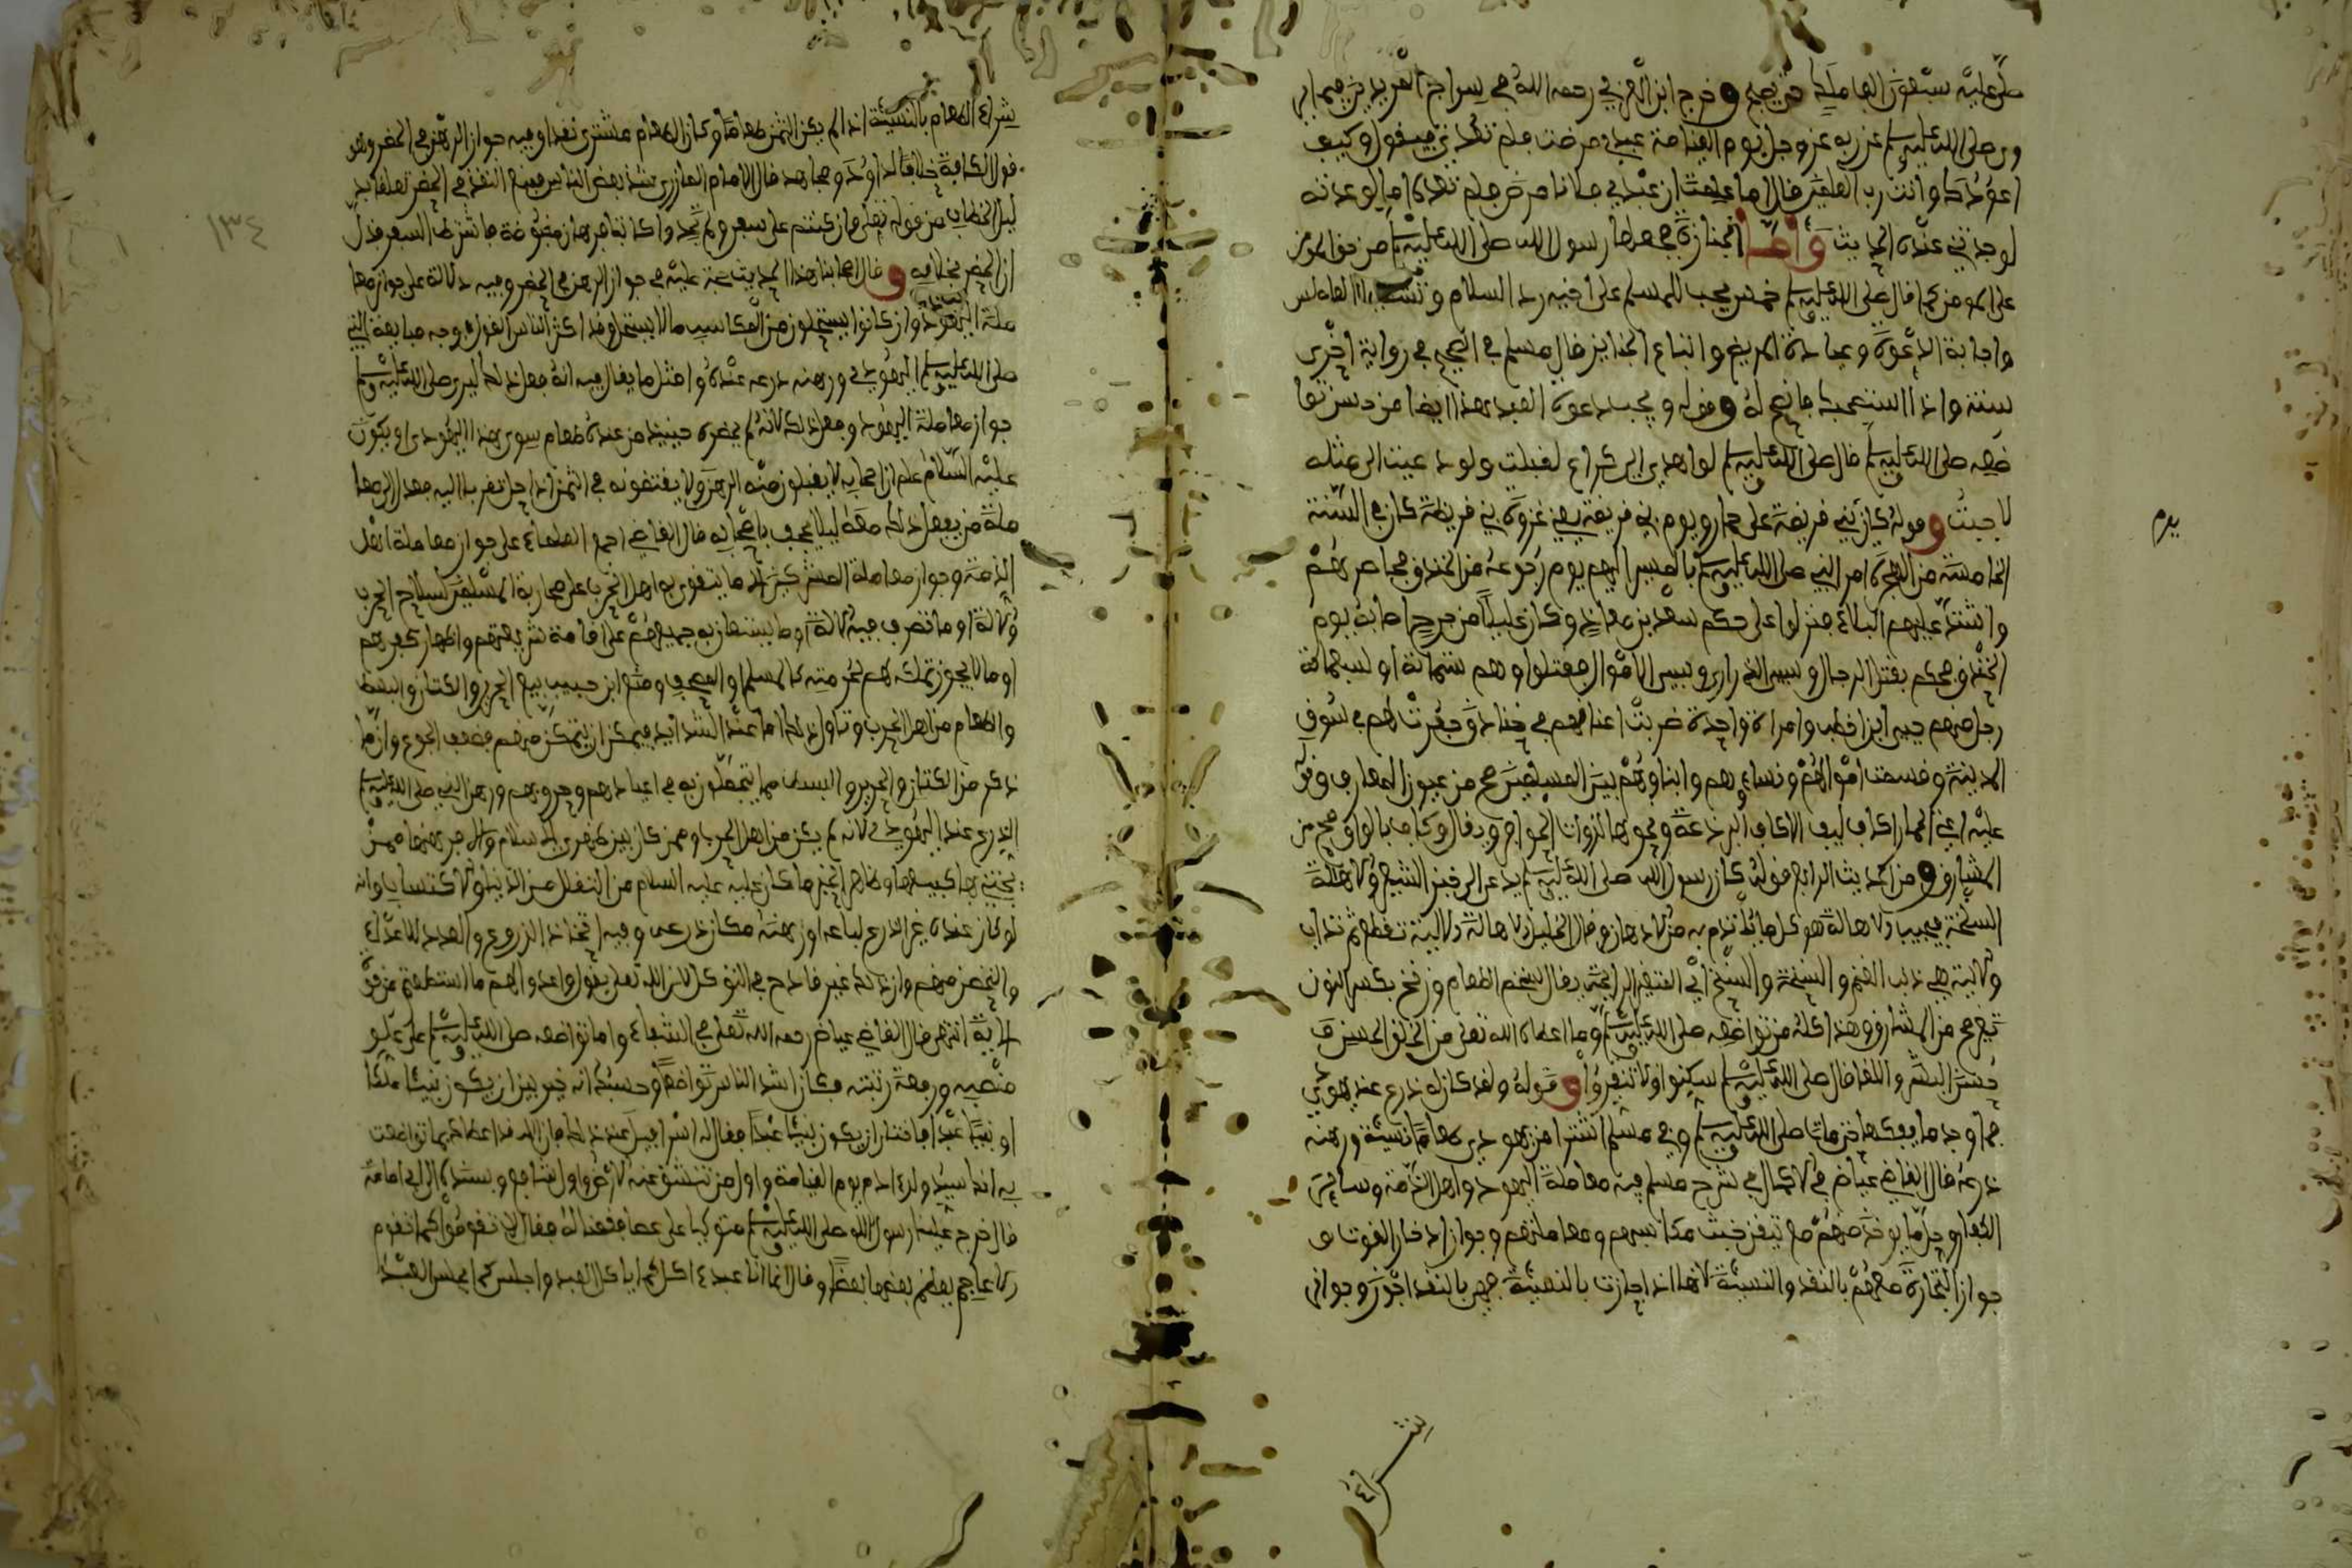 صلى عليه سبعون الف ملك حتى يصبح وخرج ابن العربي رحمه الله في سراج المريدين فيما
روى صلى الله عليه وسلم عن ربه عز وجل يوم القيامة عبدي مرضت فلم تعدني فيقول وكيف
اعودك وانت رب العلمين قال اما علمت ان عبدي فلانا مرض فلم تعده اما لو عدته
لوجدتني عنده الحديث وأما الجنازة فجعلها رسول الله صلى الله عليه وسلم من حق المومن
على المومن كما قال صلى الله عليه وسلم خمس يجب للمسلم على اخيه رد السلام وتشميت العاطس
واجابة الدعوة وعيادة المريض واتباع الجنايز قال مسلم في الصحيح في رواية اخرى
ستة واذا استنصحك فانصح له وقوله ويجيب دعوة العبد هذا ايضا من
تواضعه صلى الله عليه وسلم قال صلى الله عليه وسلم لو اهدي الي كراع لقبلت ولو دعيت الى مثله
لاجبت وقوله كان بني قريظة على حمار ويوم بني قريظة يعني غزوة بني قريظة كان في السنة
الخامسة من الهجرة امر النبي صلى الله عليه وسلم بالمسير اليهم يوم رجوعه من الخندق فحاصرهم
واشتد عليهم البلاء فنزلوا على حكم سعد بن معاذ وكان عليلا من جرح اصابه يوم
الخندق فحكم بقتل الرجال وسبي الذراري وسبي الاموال فقتلوا وهم ستماية او سبعماية
رجل منهم حيي ابن اخطب وامراة واحدة ضربت اعناقهم في خنادق حفرت لهم في سوق
المدينة وقسمت اموالهم ونساءهم وابناوهم بين المسلمين صح من عيون المعارف وقوله
عليه اعني الحمار اكاف ليف الاكاف البرذعة ونحوها لذوات الحوافر ويقال وكاف بالواو صح من
المشارق ومن الحديث الرابع قوله كان رسول الله صلى الله عليه وسلم يدعى الى خبز الشعير والاهالة
السنخة فيجيب الاهالة هو كل ما يوتدم به من الادهان وقال الخليل الاهالة الالية تقطع ثم تذاب
والالية هي ذنب الغنم والسنخة والسنخ اي المتغير الرايحة يقال سنخ الطعام وزنخ بكسر النون
تغير صح من المشارق وهذا كله من تواضعه صلى الله عليه وسلم وما اعطاه الله تعلى من الخلق الحسن
حسن البشر واللقا قال صلى الله عليه وسلم سكنوا ولا تنفروا وقوله ولقد كان له درع عند يهودي
فما وجد ما يفكها حتى مات صلى الله عليه وسلم وفي مسلم اشترا من يهودي طعاما نسيئة ورهنه
درعه قال القاضي عياض في الاكمال في شرح مسلم فيه معاملة اليهود واهل الذمة وساير
الكفار وحل ما يوخذ منهم مع تيقن خبث مكاسبهم ومعاملتهم وجواز ادخار القوت
جواز التجارة معهم بالنقد والنسيئة لانها اذا جازت بالنسيئة فهي بالنقد اجوز وجواز
يوم
شراء الطعام بالنسيئة اذا لم يكن الثمن طعاما وكان الطعام مشترى نقدا وفيه جواز الرهن في الحضر وهو
قول الكافة خلافا لداوود ومجاهد قال الامام المازري شذ بعض الناس فمنع في الحضر تعلقا
لدليل الخطاب من قوله تعلى فان كنتم على سفر ولم تجدوا كاتبا فرهان مقبوضة فاشترط السفر فدل
ان الحضر بخلافه وقال اصحابنا هذا الحديث حجة عليه في جواز الرهن في الحضر وفيه دلالة على جواز معا
ملة اليهود وان كانوا يستحلون من المكاسب ما لا يستحل وقد اكثر الناس القول في وجه مبايعة النبي
صلى الله عليه وسلم اليهودي ورهنه درعه عنده وامثل ما يقال فيه انه فعل ذلك ليرى صلى الله عليه وسلم
جواز معاملة اليهود وفعل ذلك لانه لم يحضره حينيذ من عنده طعام سوى هذا اليهودي او يكون
عليه السلام علم ان اصحابه لا يقبلون منه الرهن ولا يقتضونه في الثمن اذا حل تقربا اليه فعدل الى معا
ملة من يفعل ذلك معه ليلا يجحف باصحابه قال القاضي اجمع العلماء على جواز معاملة اهل
الذمة وجواز معاملة المشركين الا ما يتقوى به اهل الحرب على محاربة المسلمين كسلاح الحرب
والالة او ما تصرف فيه الالة او ما يستعان به جميعهم على اقامة شريعتهم واظهار كفرهم
او ما لا يجوز تملكه لهم لحرمته كالمسلم والمصحف ومنع ابن حبيب بيع الحرير والكتان والبسط
والطعام من اهل الحرب وتاول ذلك اما عند الشدايد فيمكن ان يتمكن منهم بضعف الجوع وان ما
ذكر من الكتان والحرير والبسط مما يتجملون به في اعيادهم وحروبهم ورهن النبي صلى الله عليه وسلم
الدرع عند اليهودي لانه لم يكن من اهل الحرب وممن كان بين ظهري الاسلام والا فرهنها ممن
يخشى بها كبيعها وظاهر الخبر ما كان عليه عليه السلام من التقلل من الدنيا والاكتساب وانه
لو كان عنده غير الدرع لباعه او رهنه مكان درعه وفيه اتخاذ الدروع والعدد للاعداء
والتحصن منهم وان ذلك غير قادح في التوكل لان الله تعلى يقول واعدوا لهم ما استطعتم من قوة
الاية انتهى قال القاضي عياض رحمه الله تعلى في الشفاء واما تواضعه صلى الله عليه وسلم على علو
منصبه ورفعة رتبته فكان اشد الناس تواضعا وحسبك انه خير بين ان يكون نبيئا ملكا
او نبيئا عبدا فاختار ان يكون نبيئا عبدا فقال له اسرافيل عند ذلك فان الله قد اعطاك بما تواضعت
به انك سيد ولد ادم يوم القيامة واول من تنشق عنه الارض واول شافع وبسنده الى ابي امامة
قال خرج علينا رسول الله صلى الله عليه وسلم متوكيا على عصا فقمنا له فقال لا تقوموا كما تقوم
الاعاجم يعظم بعضها بعضا وقال انما انا عبد اكل كما ياكل العبد واجلس كما يجلس العبد
١٣٤
شراء